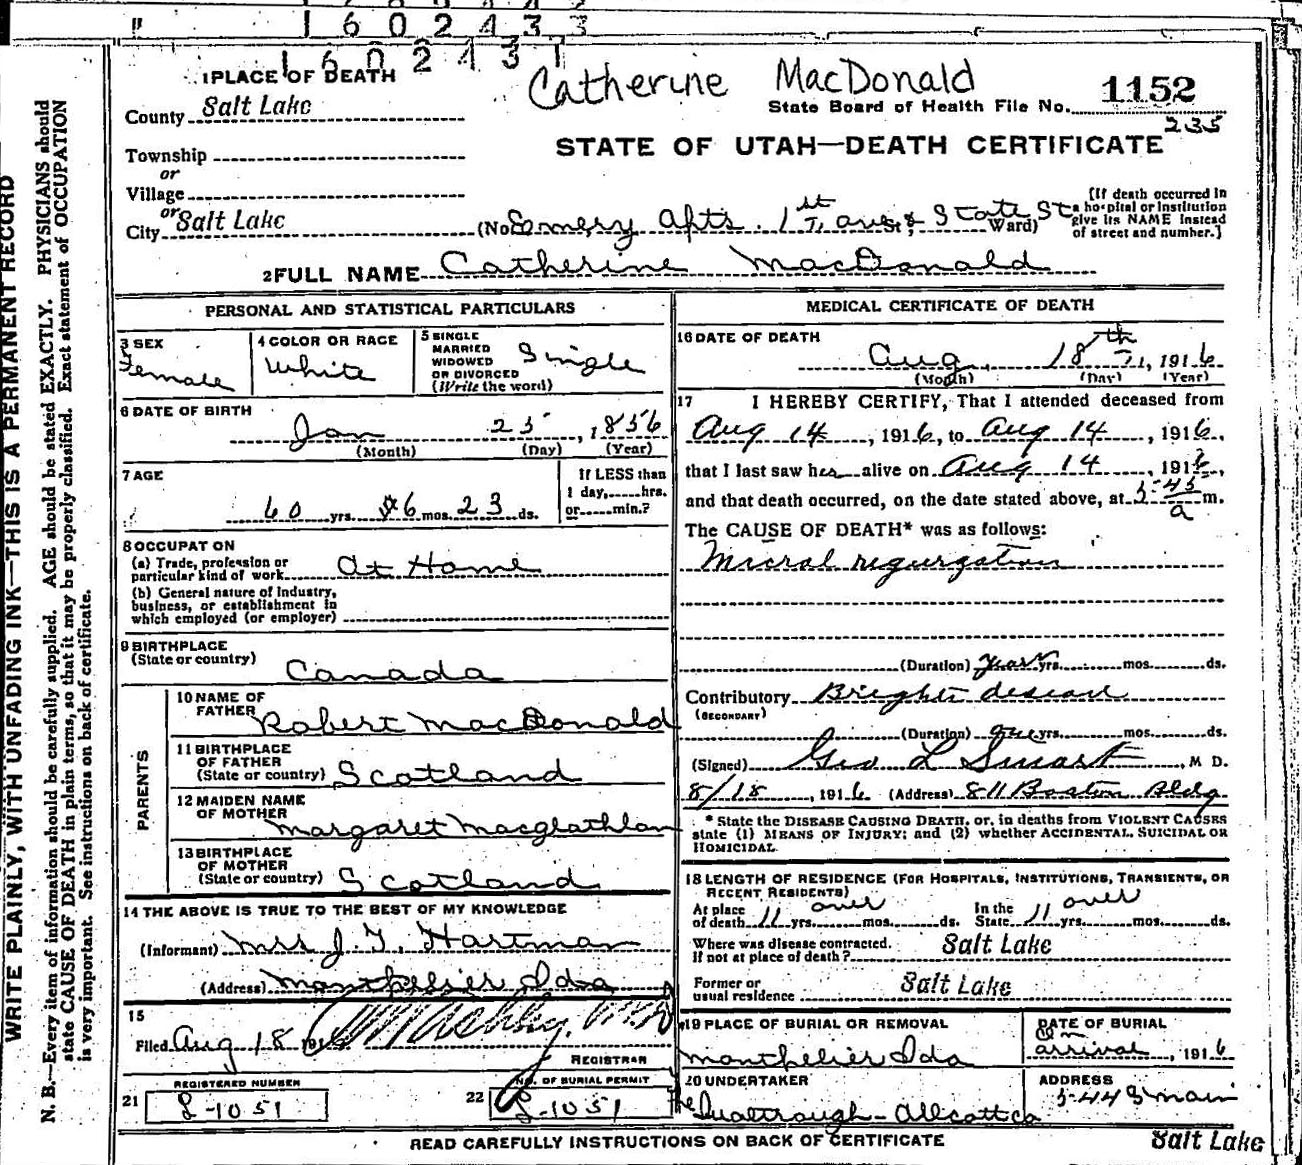 1 6 0 2 4 3 3
1 6 0 2 4 3 1
1 PLACE OF DEATH
Catherine MacDonald
1152
County Salt Lake
State Board of Health File No.
235
STATE OF UTAH—DEATH CERTIFICATE
Township
or
Village
or
City Salt Lake
(No. Emery Apts. 1st ave & State St Ward)
[If death occurred in
a hospital or institution
give its NAME instead
of street and number.]
2 FULL NAME Catherine MacDonald
PERSONAL AND STATISTICAL PARTICULARS
3 SEX
Female
4 COLOR OR RACE
White
5 SINGLE
MARRIED
WIDOWED
OR DIVORCED
(Write the word)
Single
6 DATE OF BIRTH
Jan 25, 1856
(Month) (Day) (Year)
7 AGE
60 yrs. 6 mos. 23 ds.
If LESS than
1 day,......hrs.
or......min.?
8 OCCUPAT ON
(a) Trade, profession or
particular kind of work At Home
(b) General nature of industry,
business, or establishment in
which employed (or employer)
9 BIRTHPLACE
(State or country)
Canada
PARENTS
10 NAME OF
FATHER Robert MacDonald
11 BIRTHPLACE
OF FATHER
(State or country) Scotland
12 MAIDEN NAME
OF MOTHER
Margaret Macglathlan
13 BIRTHPLACE
OF MOTHER
(State or country) Scotland
14 THE ABOVE IS TRUE TO THE BEST OF MY KNOWLEDGE
(Informant) Mrs J. T. Hartman
(Address) Montpelier Ida
15
Filed Aug 18 191
REGISTRAR
REGISTERED NUMBER
21 L-1051
NO. OF BURIAL PERMIT
22 L-1051
MEDICAL CERTIFICATE OF DEATH
16 DATE OF DEATH
Aug. 18th, 1916
(Month) (Day) (Year)
17 I HEREBY CERTIFY, That I attended deceased from
Aug 14, 1916, to Aug 14, 1916,
that I last saw her alive on Aug 14, 1916,
and that death occurred, on the date stated above, at 5-45 a m.
The CAUSE OF DEATH* was as follows:
Micral regurgation
(Duration) years yrs. mos. ds.
Contributory Brights disease
(SECONDARY)
(Duration) yrs. mos. ds.
(Signed) Geo L Smart, M D.
8/18, 1916 (Address) 811 Boston Bldg
* State the DISEASE CAUSING DEATH, or, in deaths from VIOLENT CAUSES
state (1) MEANS OF INJURY; and (2) whether ACCIDENTAL, SUICIDAL OR
HOMICIDAL.
18 LENGTH OF RESIDENCE (FOR HOSPITALS, INSTITUTIONS, TRANSIENTS, OR
RECENT RESIDENTS)
At place
of death 11 yrs. over mos. ds.
In the
State 11 yrs. over mos. ds.
Where was disease contracted.
If not at place of death? Salt Lake
Former or
usual residence Salt Lake
19 PLACE OF BURIAL OR REMOVAL
Monthelier Ida
DATE OF BURIAL
On
arrival, 1916
20 UNDERTAKER
Gualtrough-Allcott Co
ADDRESS
544 S Main
Salt Lake
READ CAREFULLY INSTRUCTIONS ON BACK OF CERTIFICATE
WRITE PLAINLY, WITH UNFADING INK—THIS IS A PERMANENT RECORD
N. B.—Every item of information should be carefully supplied. AGE should be stated EXACTLY. PHYSICIANS should
state CAUSE OF DEATH in plain terms, so that it may be properly classified. Exact statement of OCCUPATION
is very important. See instructions on back of certificate.